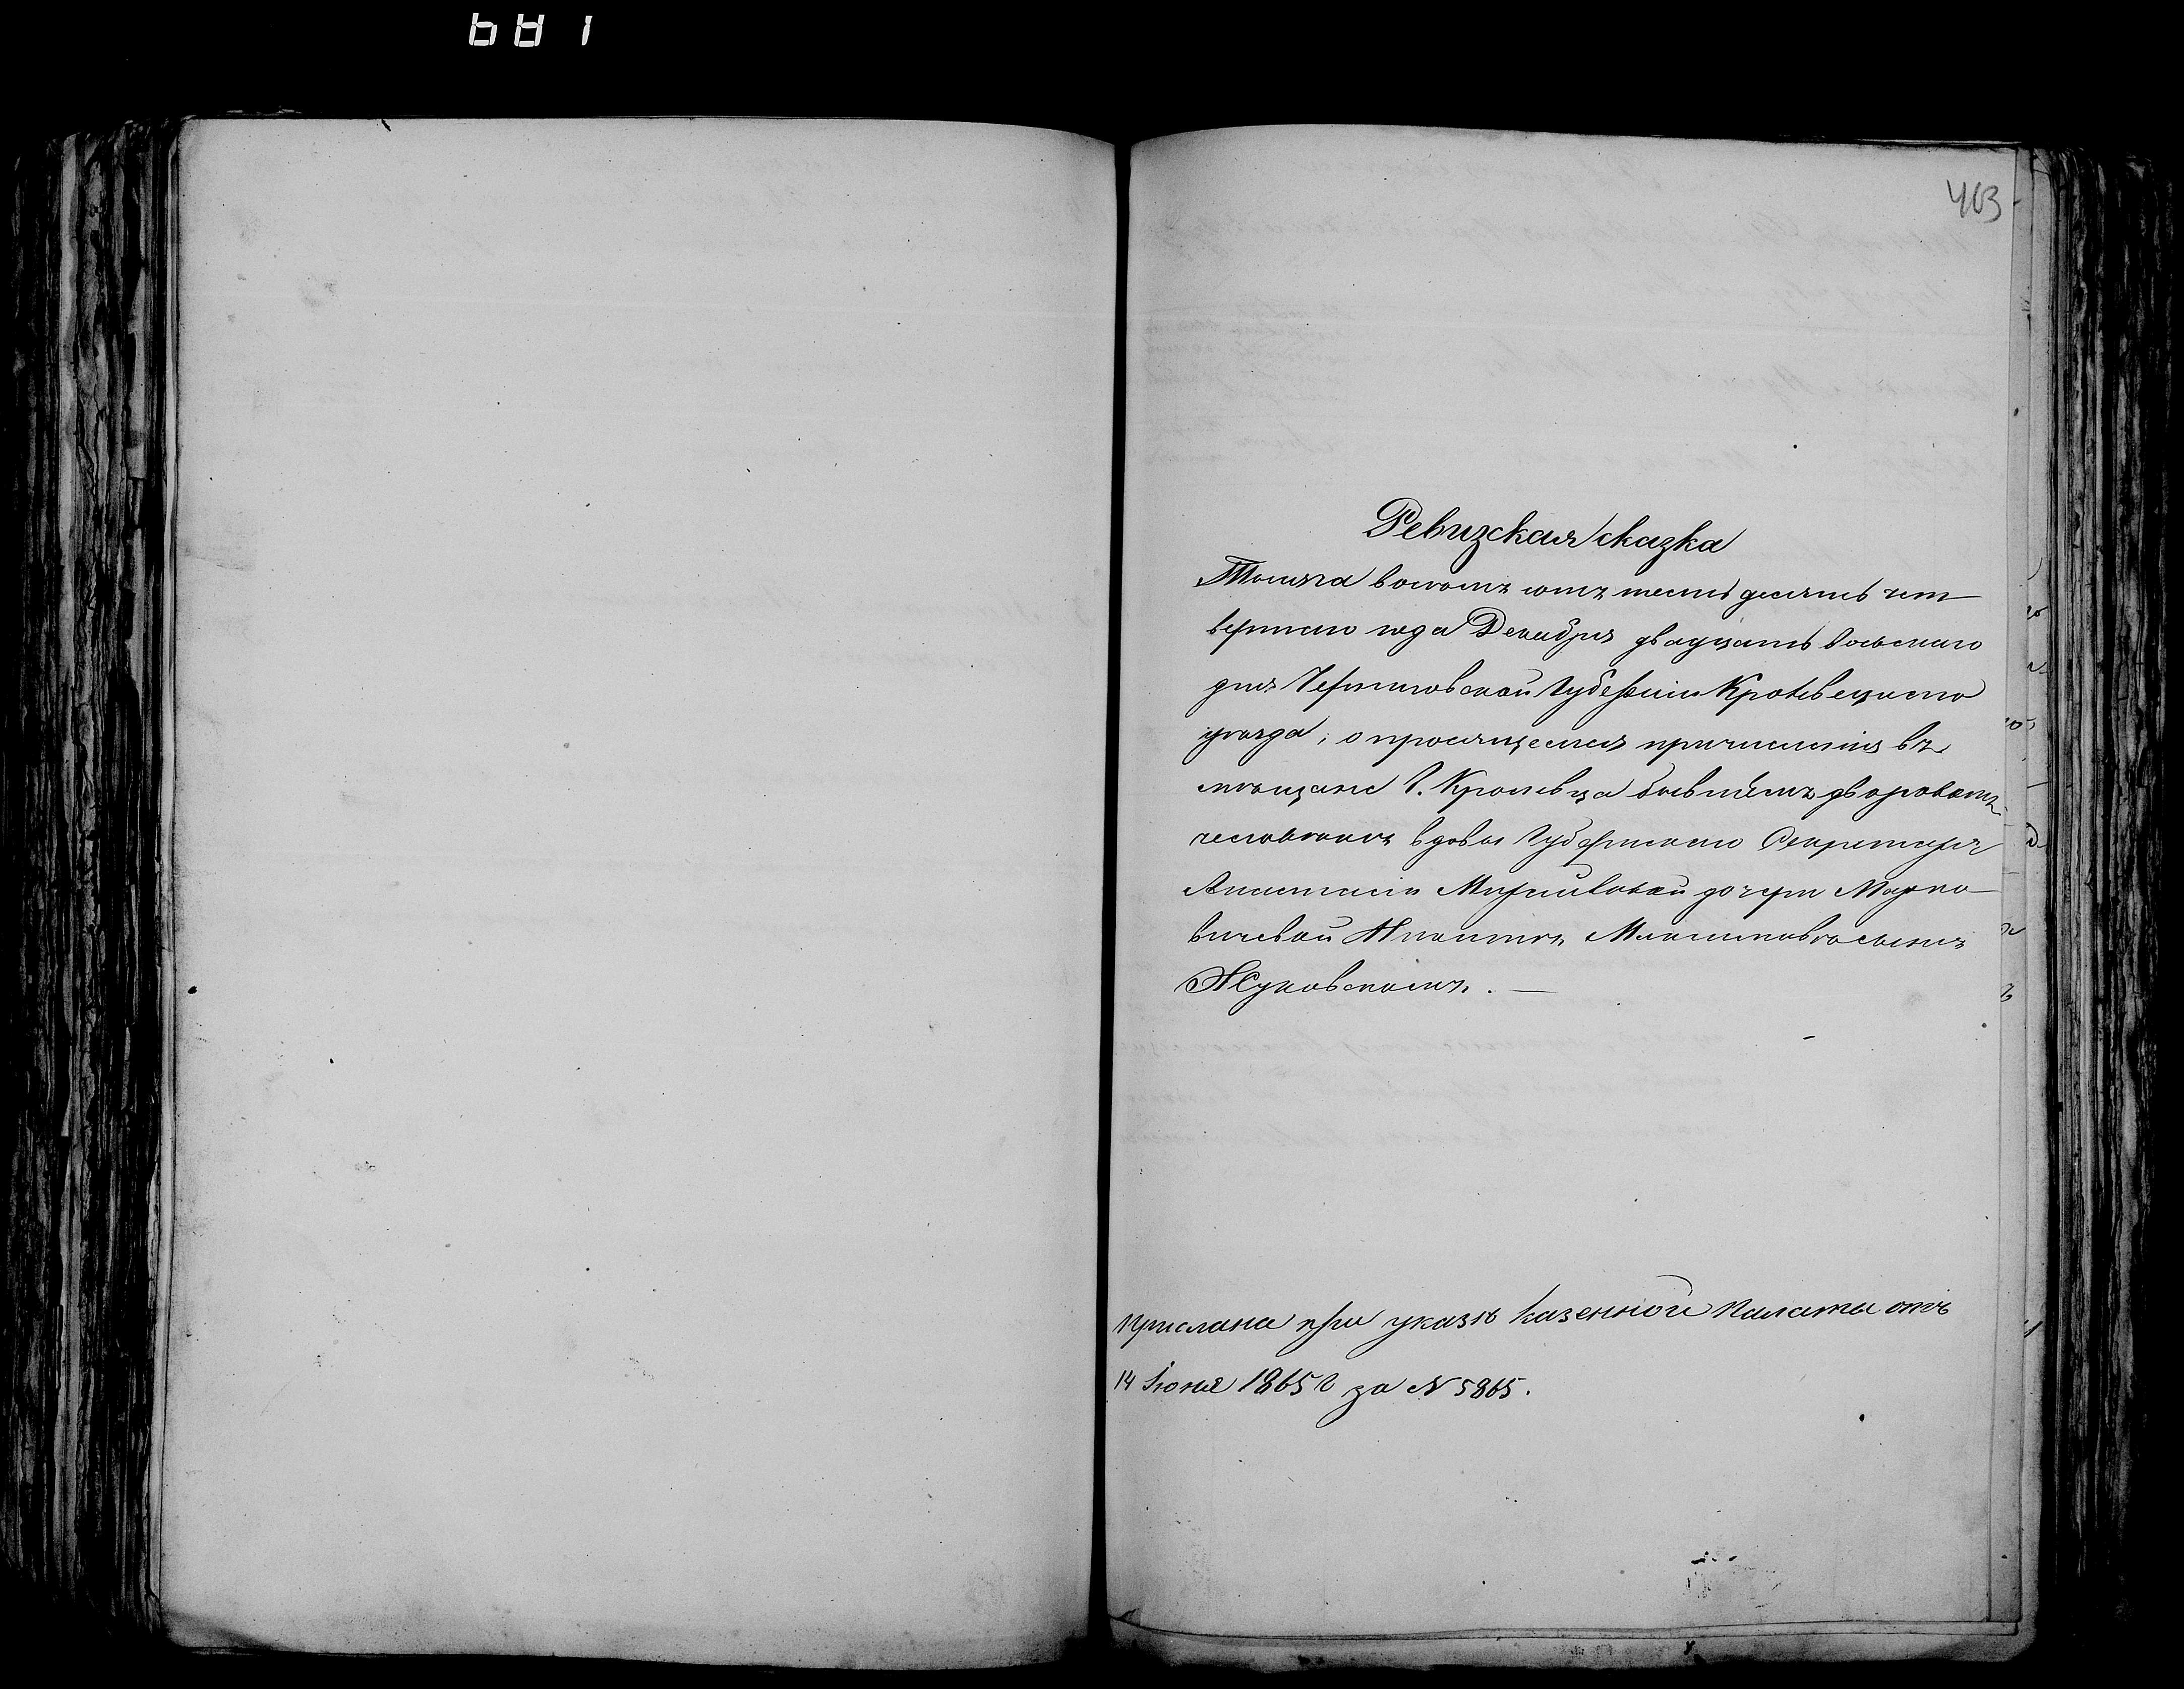 681
403
Ревизская сказка
Тысяча восемъ сотъ шесть десятъ чет
вертаго года Декабря двадцать восьмаго
дня Черниговской Губерніи Кролевецкаго
уѣзда, о просящемся причисленія въ
мѣщане Г. Кролевца бывшемъ дворовомъ
человѣкѣ вдовы Губернскаго Секретаря
Анастасіи Мироновой дочери Марко
вичевой Никитѣ сынѣ
Жуковскомъ. —
Прислана при указѣ Казенной Палаты отъ
14 Іюня 1865 г за N 5865.